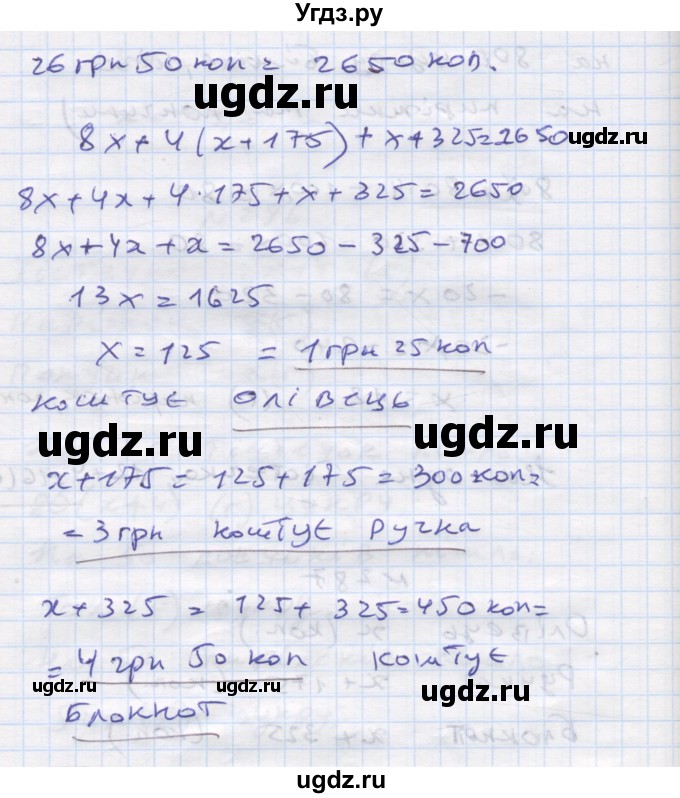 Угдз.ру
26 грн 50 коп = 2650 коп.
ugdz.ru
8x + 4(x + 175) + x + 325 = 2650
ugdz.ru
8x + 4x + 4·175 + x + 325 = 2650
8x + 4x + x = 2650 - 325 - 700
13x = 1625
x = 125 = 1 грн 25 коп
коштує олівець
ugdz.ru ugdz.ru
x + 175 = 125 + 175 = 300 коп =
= 3 грн коштує ручка
x + 325 = 125 + 325 = 450 коп =
= 4 грн 50 коп коштує
ugdz.ru ugdz.ru ugdz.ru
блокнот
ugdz.ru